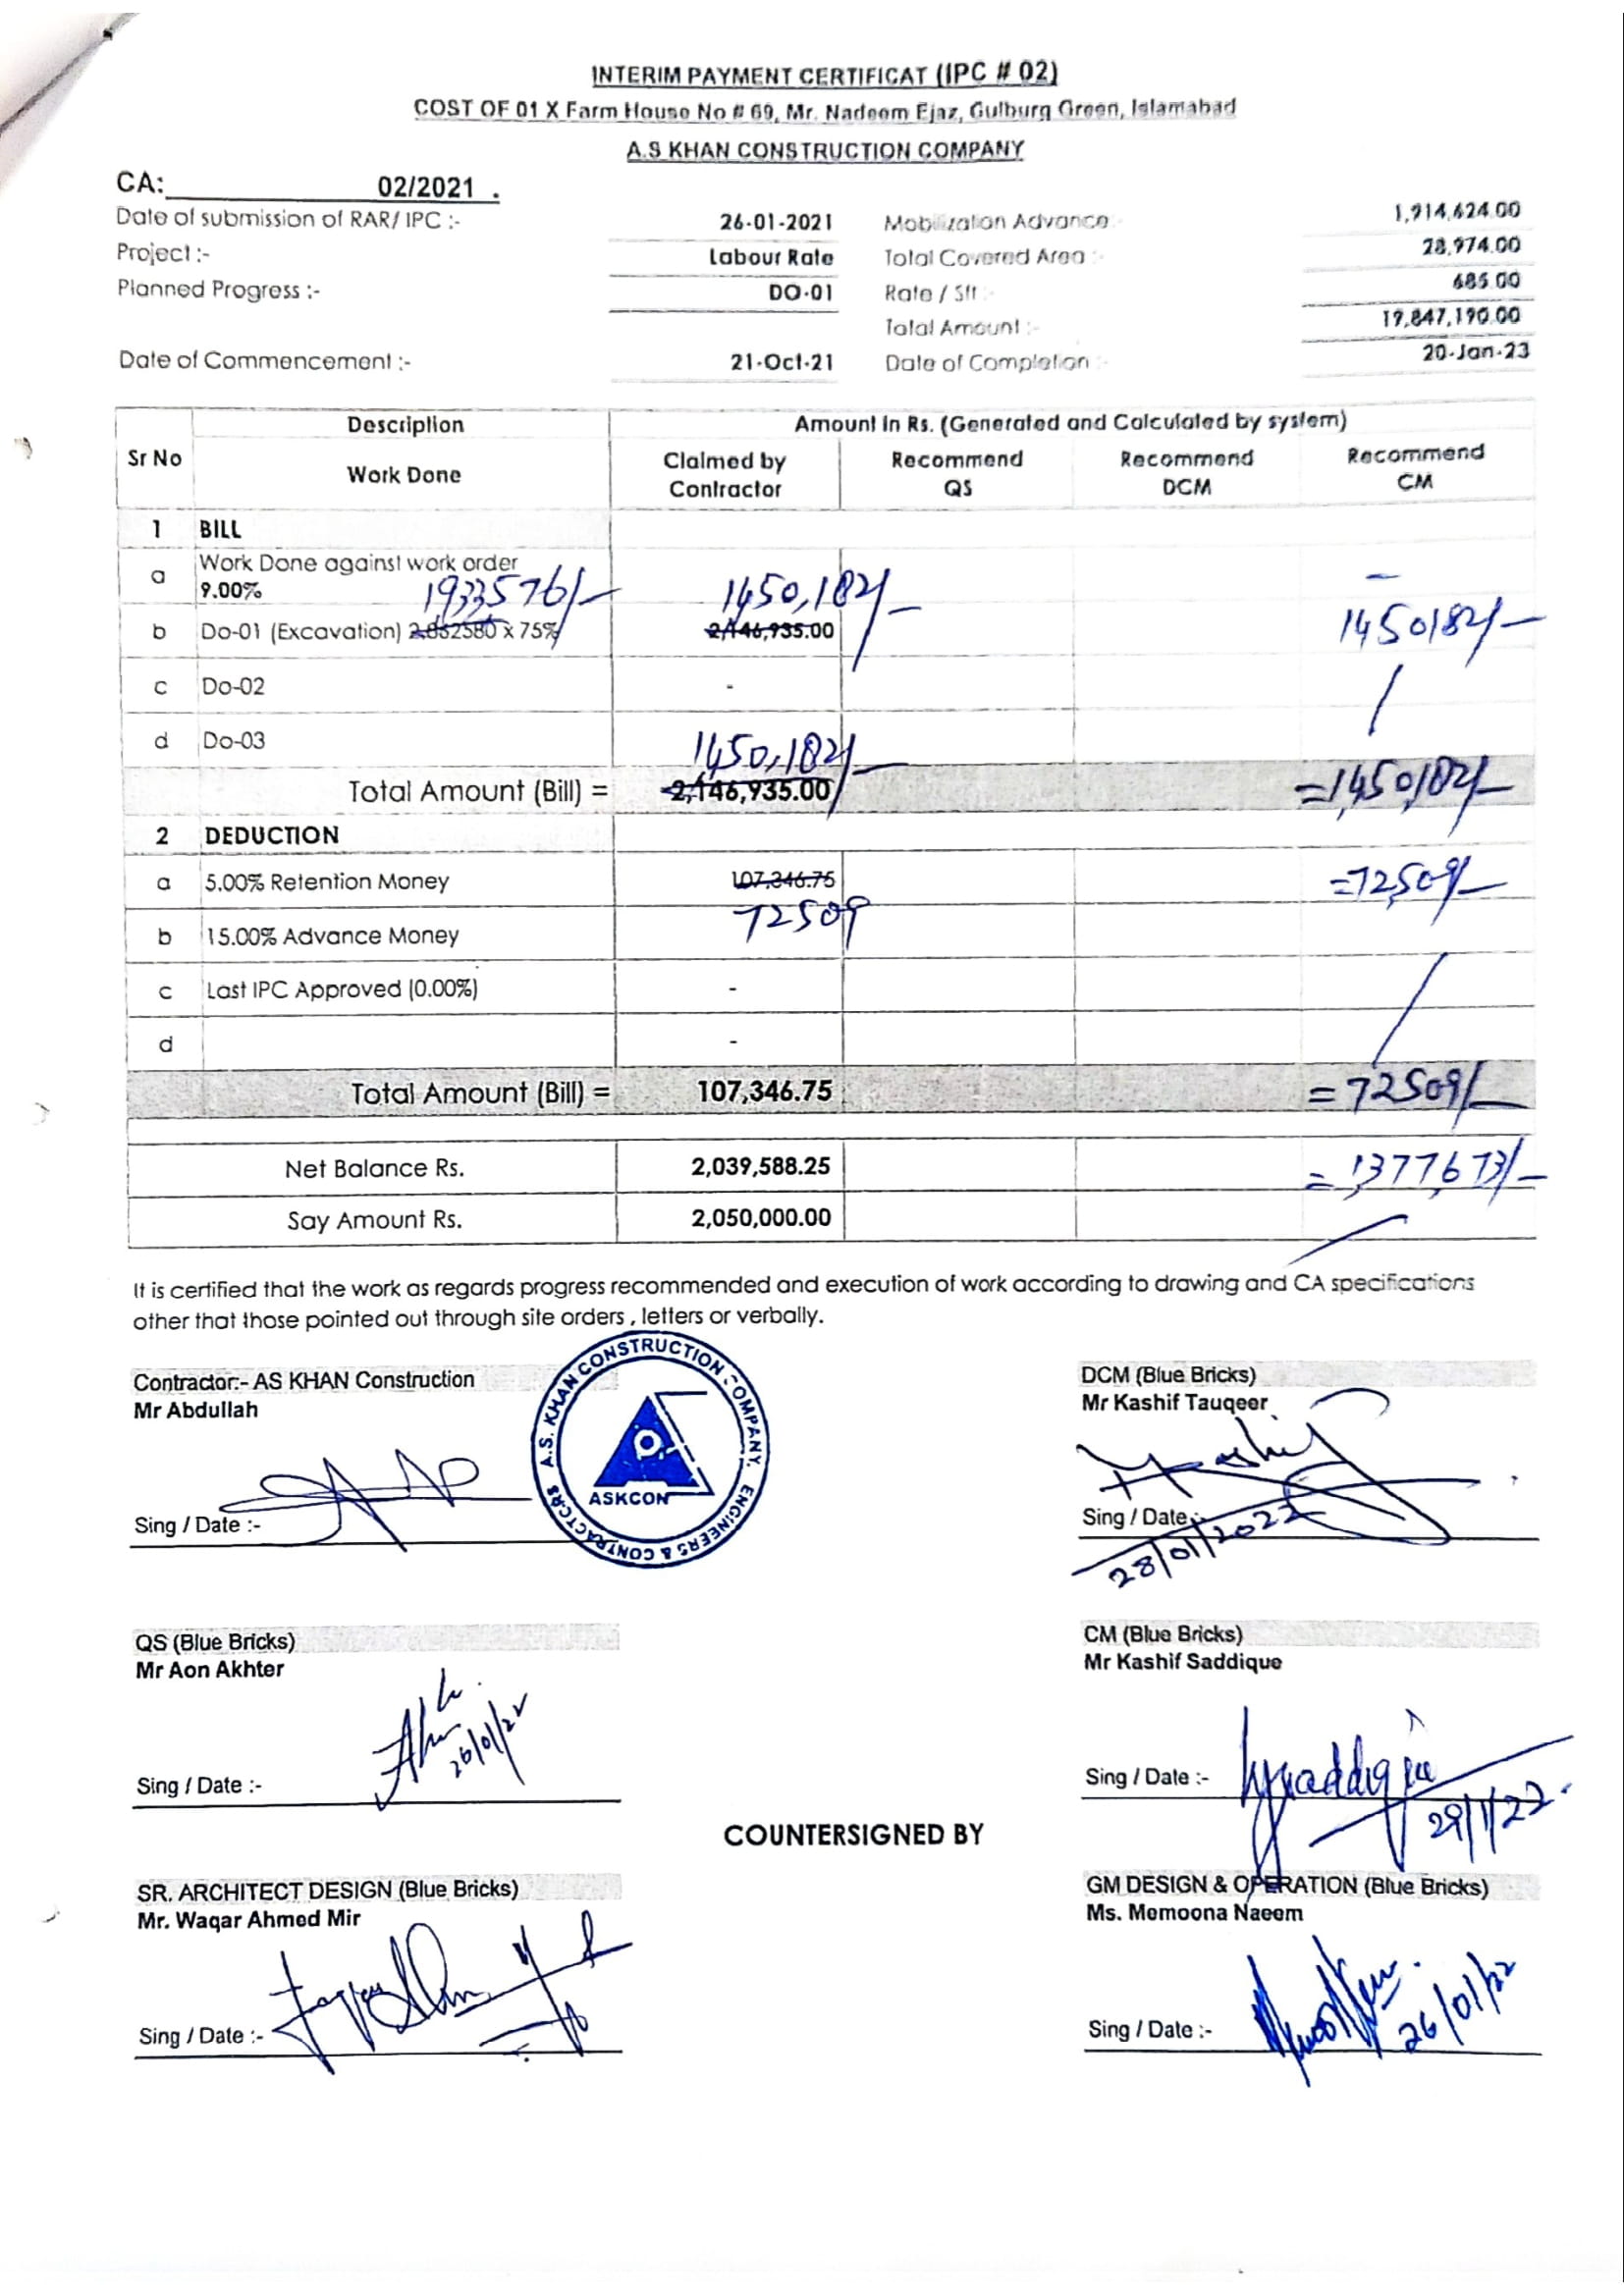 INTERIM PAYMENT CERTIFICAT (IPC # 02)
COST OF 01 X Farm House No # 69, Mr. Nadeem Ejaz, Gulburg Green, Islamabad
A.S KHAN CONSTRUCTION COMPANY
CA: 02/2021 .
Date of submission of RAR/ IPC :- 26-01-2021 Mobilization Advance:- 1,914,624.00
Project :- Labour Rate Total Covered Area :- 28,974.00
Planned Progress :- DO-01 Rate / Sft :- 685.00
Total Amount :- 19,847,190.00
Date of Commencement :- 21-Oct-21 Date of Completion :- 20-Jan-23
Sr No Description Amount in Rs. (Generated and Calculated by system)
Work Done Claimed by Contractor Recommend QS Recommend DCM Recommend CM
1 BILL
a Work Done against work order
9.00% 1933576/- 1450,182/- -
b Do-01 (Excavation) 2862580 x 75% 2,146,935.00 1450182/-
c Do-02 -
d Do-03 1450,182/-
Total Amount (Bill) = 2,146,935.00 =1,450,182/-
2 DEDUCTION
a 5.00% Retention Money 107,346.75 =72,509/-
72509
b 15.00% Advance Money
c Last IPC Approved (0.00%) -
d -
Total Amount (Bill) = 107,346.75 =72509/-
Net Balance Rs. 2,039,588.25 =1,377,673/-
Say Amount Rs. 2,050,000.00
It is certified that the work as regards progress recommended and execution of work according to drawing and CA specifications
other that those pointed out through site orders , letters or verbally.
Contractor:- AS KHAN Construction
Mr Abdullah
Sing / Date :-
A.S. KHAN CONSTRUCTION COMPANY. ENGINEERS & CONTRACTORS
ASKCON
DCM (Blue Bricks)
Mr Kashif Tauqeer
Sing / Date :-
28/01/2022
QS (Blue Bricks)
Mr Aon Akhter
26/01/22
Sing / Date :-
CM (Blue Bricks)
Mr Kashif Saddique
Sing / Date :-
29/1/22.
COUNTERSIGNED BY
SR. ARCHITECT DESIGN (Blue Bricks)
Mr. Waqar Ahmed Mir
Sing / Date :-
GM DESIGN & OPERATION (Blue Bricks)
Ms. Memoona Naeem
Sing / Date :- 26/01/22